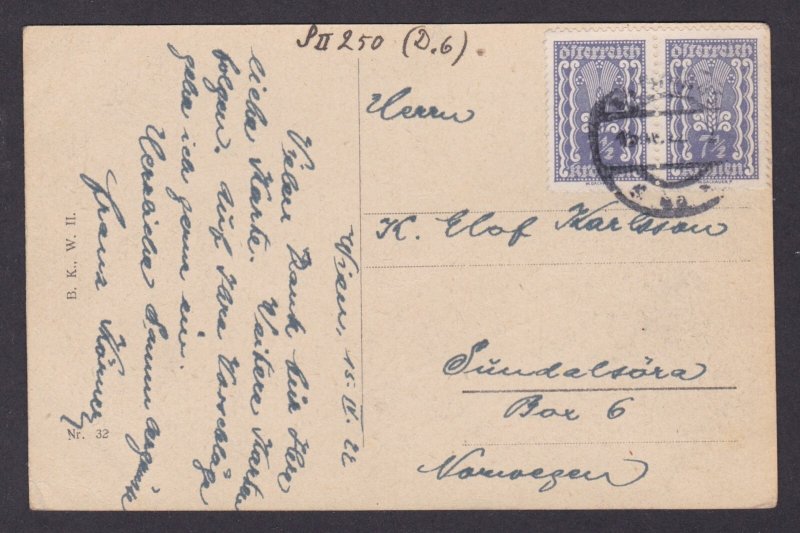 SII 250 (D.6)
österreich österreich
7½ 7½
kronen kronen
Wien, 15. IV. 22
Vielen Dank für Ihre
liebe Karte. Weitere Karten
folgen. Auf Ihre Vorschläge
gehe ich gerne ein.
Herzliche
Franz Körner
B. K. W. II.
Nr. 32
Herrn
K. Elof Karlsson
Sundalsöra
Box 6
Norwegen